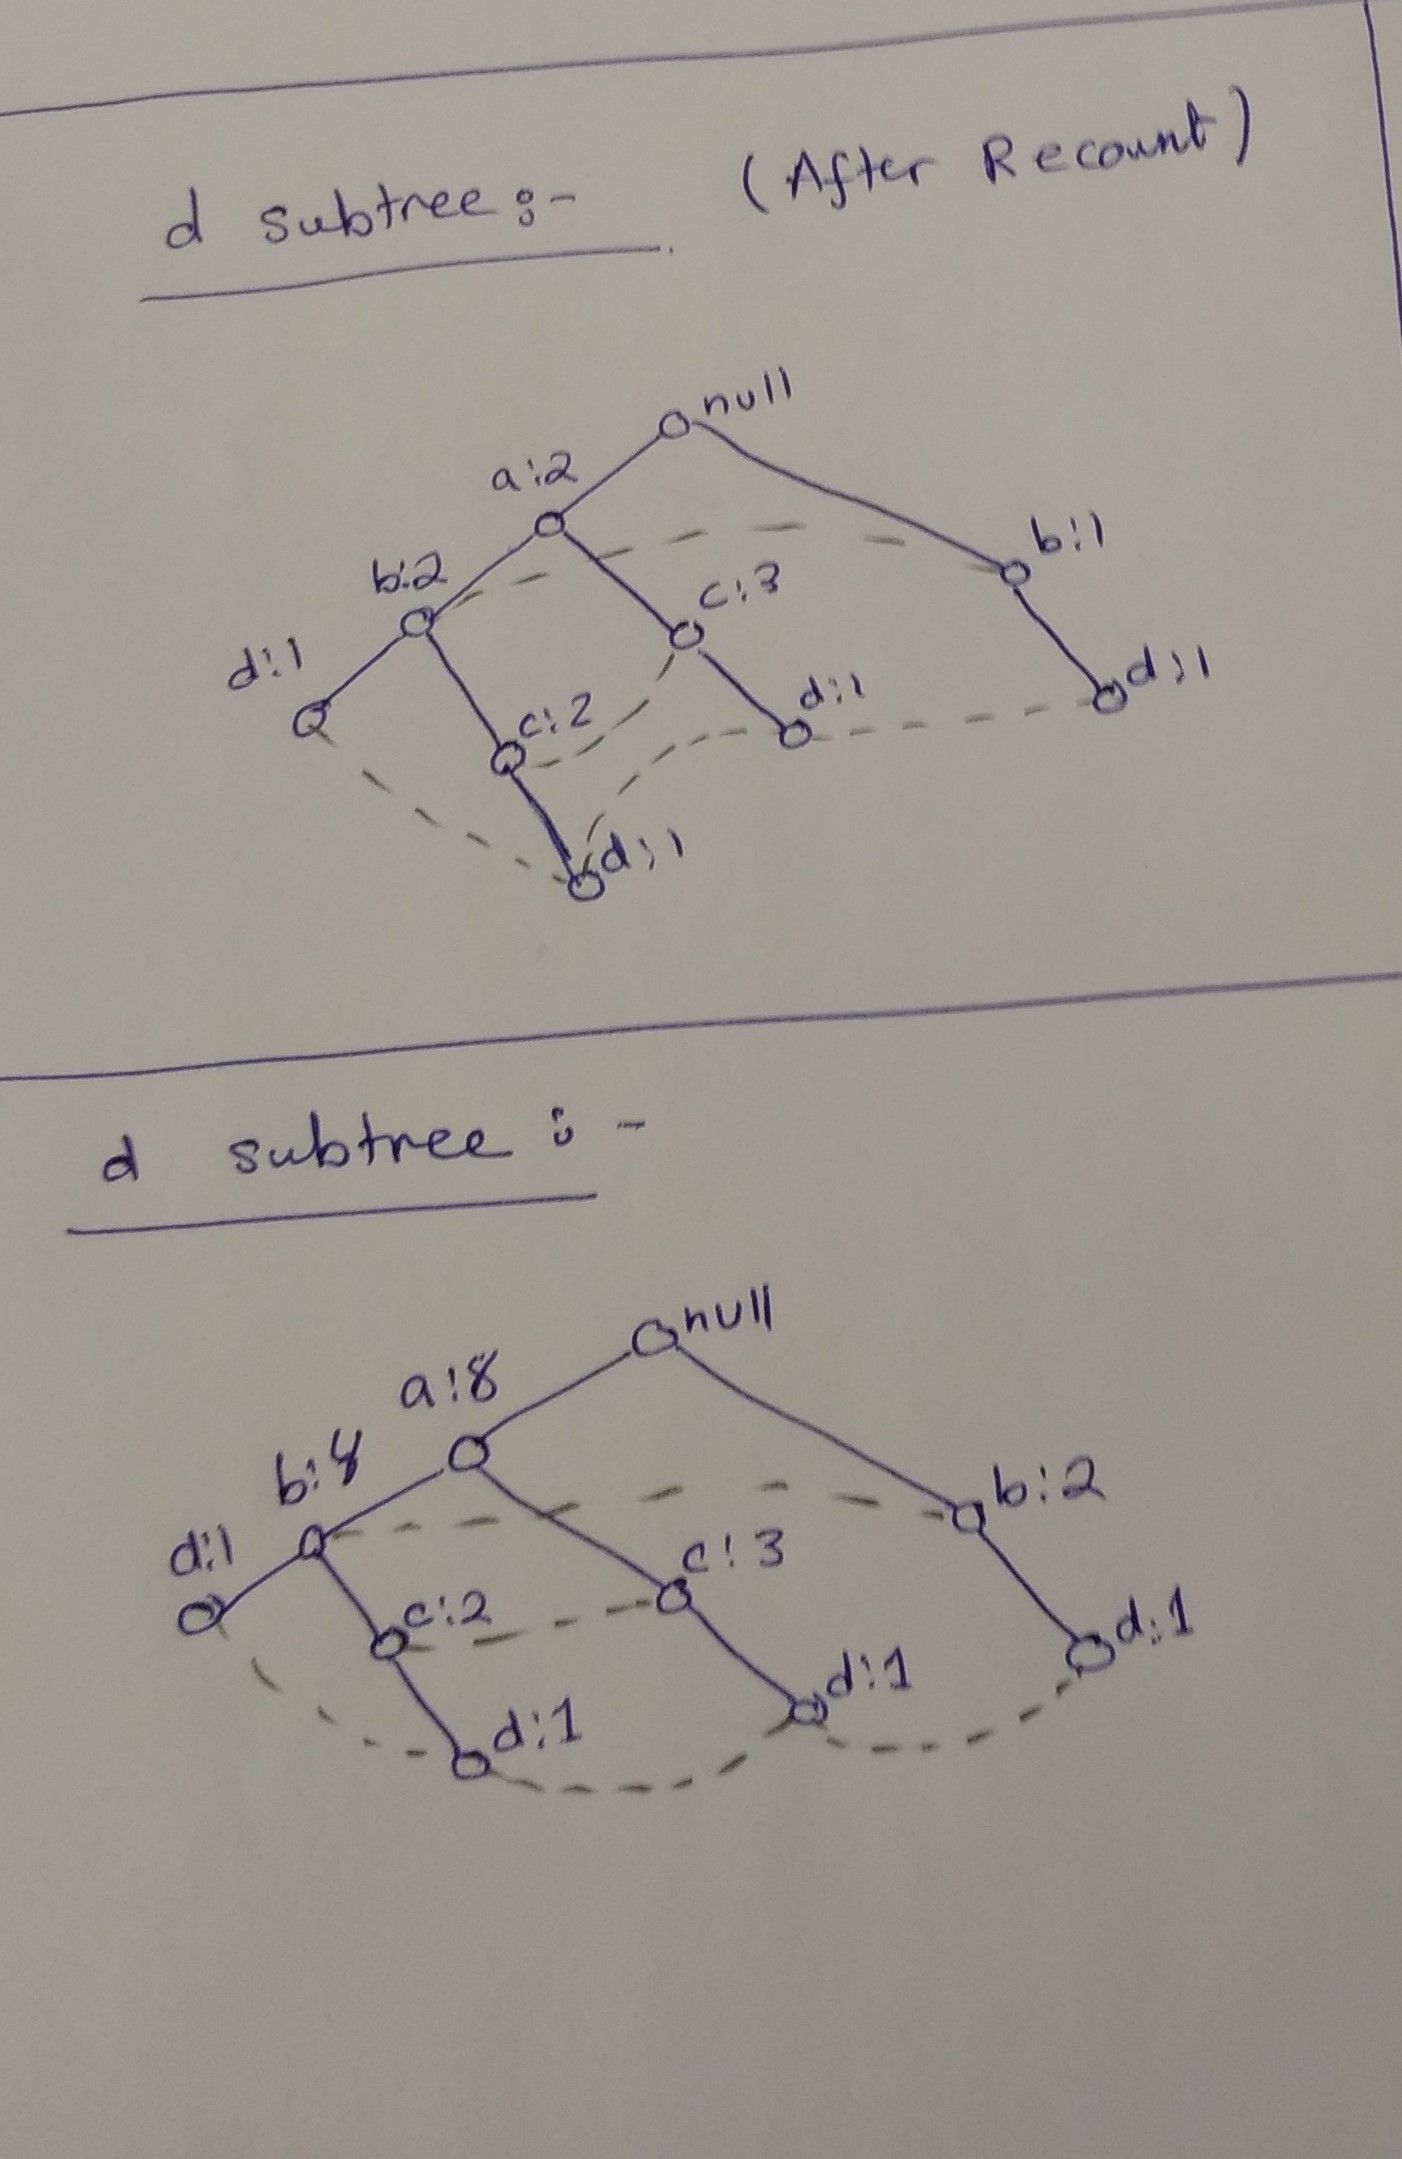 d subtree :- (After Recount)
null
a:2
b:2
b:1
c:3
d:1
d:1
d:1
c:2
d:1
d subtree :-
null
a:8
b:2
d:1
c:3
c:2
d:1
d:1
d:1